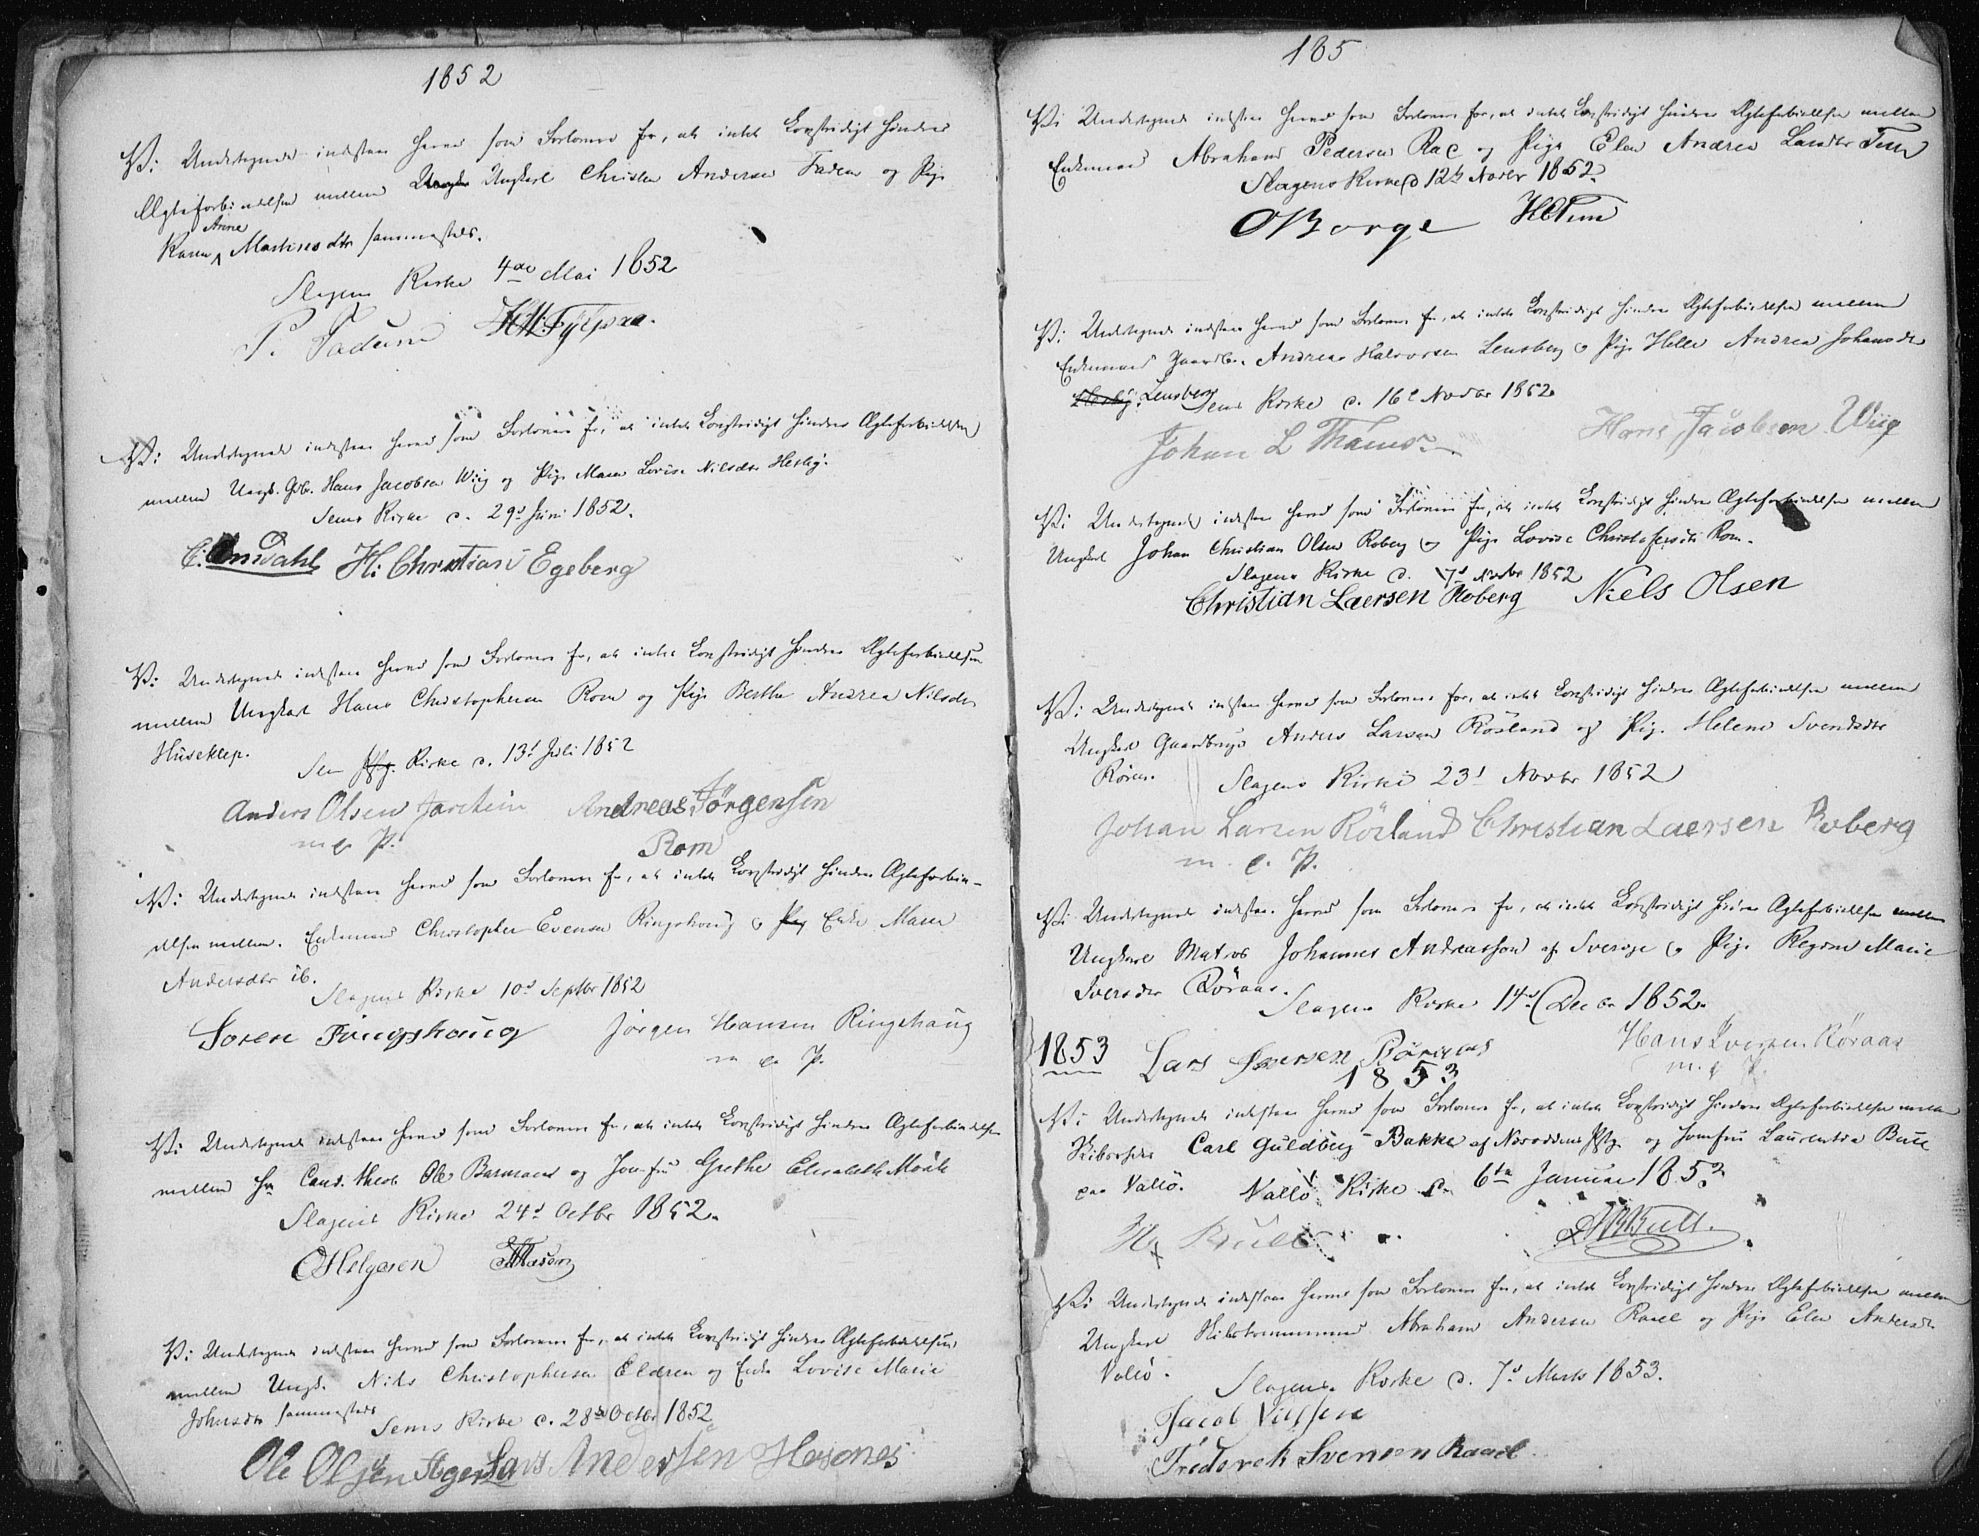 1852
Vi Undertegnede indestaae herved som Forlovere for, at intet Lovstridigt hindrer
Ægteforbindelsen mellem Ungkarl Christen Andersen Fadum og Pige
Anne
Karen Martinesdtr sammesteds.
Slagens Kirke 4de Mai 1852
P. Fadum
Vi Undertegnede indestaae herved som Forlovere for, at intet Lovstridigt hindrer Ægteforbindelsen
mellem Ungk. Gbr. Hans Jacobsen Wiig og Pige Maren Lovise Nilsdtr Hesby.
Sems Kirke d. 29d Juni 1852.
H: Christian Egeberg
Vi Undertegnede indestaae herved som Forlovere for, at intet Lovstridigt hindrer Ægteforbindelsen
mellem Ungkarl Hans Christophersen Rom og Pige Berthe Andrea Nilsdtr
Huseklep.
Sem Kirke d. 13d Juli 1852
Anders Olsen Jarstein Andreas Jörgensen
m. p. P. Rom
Vi Undertegnede indestaae herved som Forlovere for, at intet Lovstridigt hindrer Ægteforbin-
delsen mellem Enkemand Christopher Evensen Ringshoug og Pige Enke Maren
Andersdtr ib.
Slagens Kirke 10d Septbr 1852
Soren Ringshaug Jörgen Hansen Ringshaug
m e P.
Vi Undertegnede indestaae herved som Forlovere for, at intet Lovstridigt hindrer Ægteforbindelsen
mellem Hr Cand. theol. Ole Barmann og Jomfru Grethe Elisabeth
Slagens Kirke 24d Octbr 1852.
OHelgesen
Vi Undertegnede indestaae herved som Forlovere for, at intet Lovstridigt hindrer Ægteforbindelsen
mellem Ungk. Nils Christophersen Eldren og Enke Lovise Marie
Johnsdtr sammesteds
Sems Kirke d. 28de Octbr 1852
Ole Olsen Lars Andersen Hesnes
185
Vi Undertegnede indestaae herved som Forlovere for, at intet Lovstridigt hindrer Ægteforbindelsen mellem
Enkemand Abraham Pedersen Rae og Pige Elen Andrea Larsdtr
Slagens Kirke d 12te Novbr 1852.
OBorge
Vi Undertegnede indestaae herved som Forlovere for, at intet Lovstridigt hindrer Ægteforbindelsen mellem
Enkemand Gaardbr. Andreas Halvorsen Lensberg og Pige Helle Andrea Johansdtr
Lensberg
Sems Kirke d. 16d Novbr 1852
Johan L Thams Hans Jacobsen Wiig
Vi Undertegnede indestaae herved som Forlovere for, at intet Lovstridigt hindrer Ægteforbindelsen mellem
Ungkarl Johan Christian Olsen Roberg og Pige Lovise Christofersdtr Rom.
Slagens Kirke d. 7d Novbr 1852
Christian Laersen Roberg Niels Olsen
Vi Undertegnede indestaae herved som Forlovere for, at intet Lovstridigt hindrer Ægteforbindelsen mellem
Ungkarl Gaardbruger Anders Larsen Rösland og Pige Helene Svendsdtr
Slagens Kirke 23d Novbr 1852
Johan Larsen Rösland Christian Laersen Roberg
m. e. P.
Vi Undertegnede indestaae herved som Forlovere for, at intet Lovstridigt hindrer Ægteforbindelsen mellem
Ungkarl Matros Johannes Andreasson af Sverige og Pige Regine Marie
Iversdtr Röraas.
Slagens Kirke 14d Decbr 1852.
1853 Lars Iversen Röraas Hans Iversen Röraas
1853 m. e P.
Vi Undertegnede indestaae herved som Forlovere for, at intet Lovstridigt hindrer Ægteforbindelsen mellem
Carl Guldberg Bakke af Næroddens Pstg. og Jomfru Laurentia Bull
paa Vallö. Vallö Kirke d. 6te Januar 1853
Bull
Vi Undertegnede indestaae herved som Forlovere for, at intet Lovstridigt hindrer Ægteforbindelsen mellem
Ungkarl Skibstømmermand Abraham Andersen Raael og Pige Elen Andersdtr
Vallö.
Slagens Kirke d. 7d Marts 1853.
Jacob
Frederek Svensen Raael